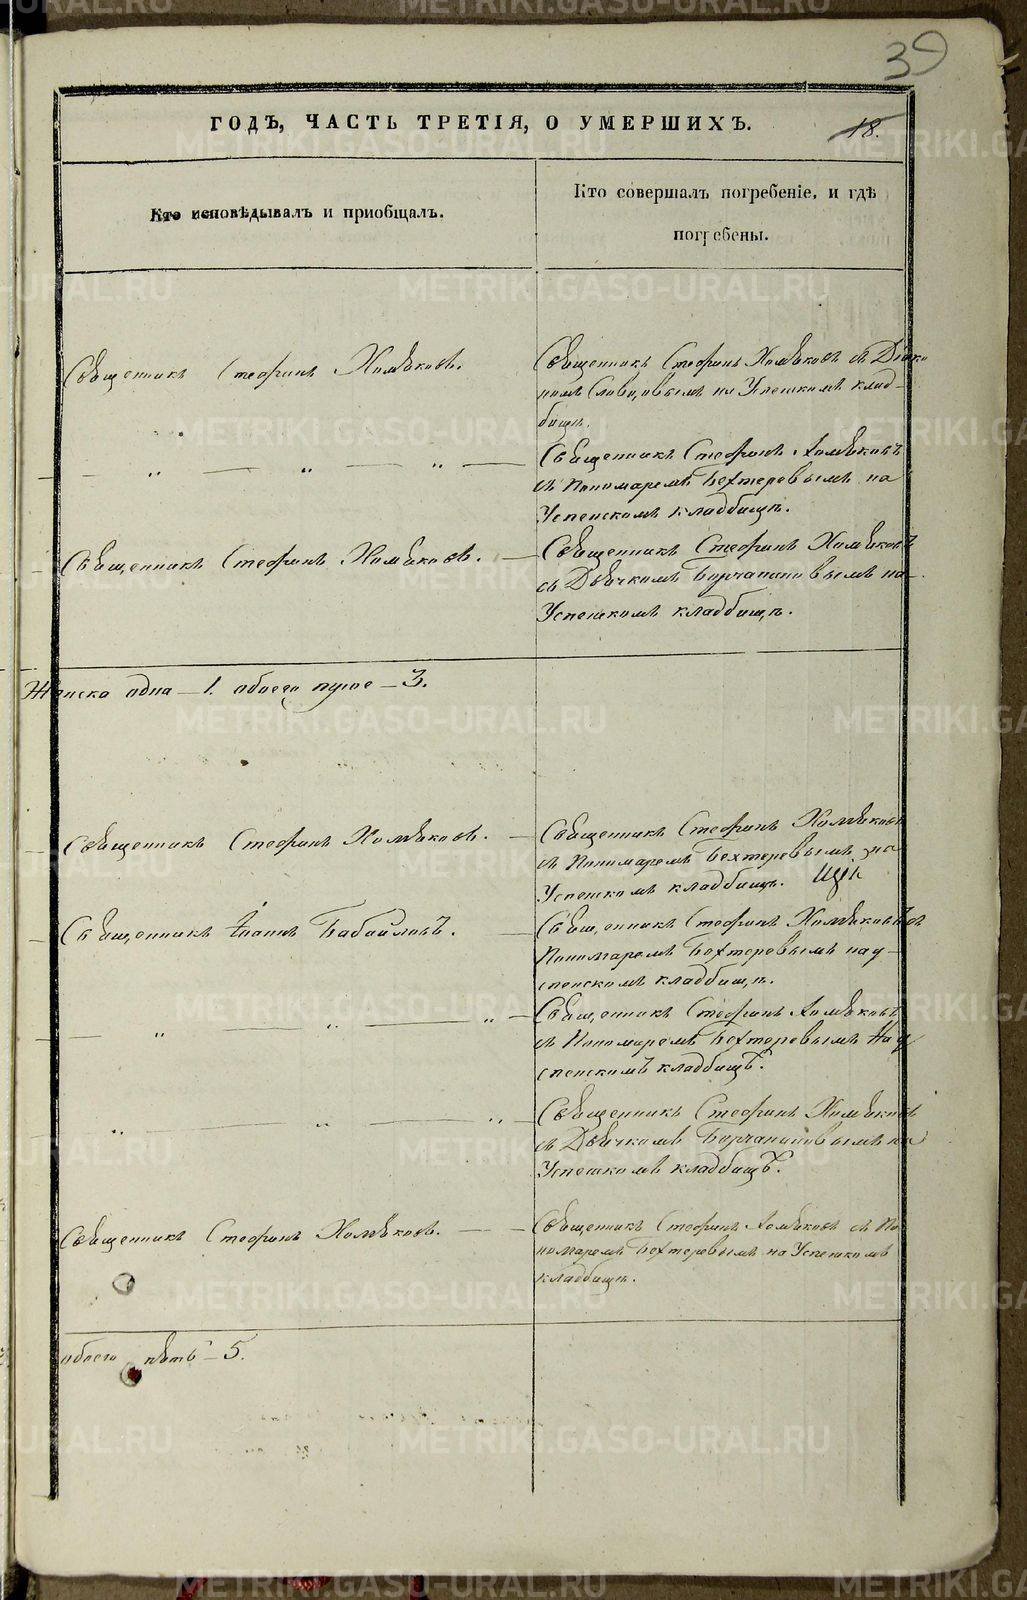 39
ГОДЪ, ЧАСТЬ ТРЕТІЯ, О УМЕРШИХЪ.
18.
Кто исповѣдывалъ и приобщалъ.
Кто совершалъ погребеніе, и гдѣ
погребены.
Священникъ Стефанъ Хомяковъ.
Священникъ Стефанъ Хомяковъ съ Діако
номъ Словцовымъ на Успенскомъ клад-
бищѣ.
— „ — „ — „ —
Священникъ Стефанъ Хомяковъ
съ Пономаремъ Бехтеревымъ на
Успенскомъ кладбищѣ.
Священникъ Стефанъ Хомяковъ. —
Священникъ Стефанъ Хомяковъ
съ Дьячкомъ на
Успенскомъ кладбищѣ.
Женска одна — 1. обоего — 3.
Священникъ Стефанъ Хомяковъ. —
Священникъ Стефанъ Хомяковъ
съ Пономаремъ Бехтеревымъ на
Успенскомъ кладбищѣ.
Священникъ Іоаннъ Бабайловъ. —
Священникъ Стефанъ Хомяковъ съ
Пономаремъ Бехтеревымъ на У-
спенскомъ кладбищѣ.
— „ — „ — „ —
Священникъ Стефанъ Хомяковъ
съ Пономаремъ Бехтеревымъ На У
спенскомъ кладбищѣ.
„ — „ — „ —
Священникъ Стефанъ Хомяковъ
съ Дьячкомъ на
Успенскомъ кладбищѣ.
Священникъ Стефанъ Хомяковъ. — —
Священникъ Стефанъ Хомяковъ съ По
номаремъ Бехтеревымъ на Успенскомъ
кладбищѣ.
обоего пять — 5.
METRIKI.GASO-URAL.RU